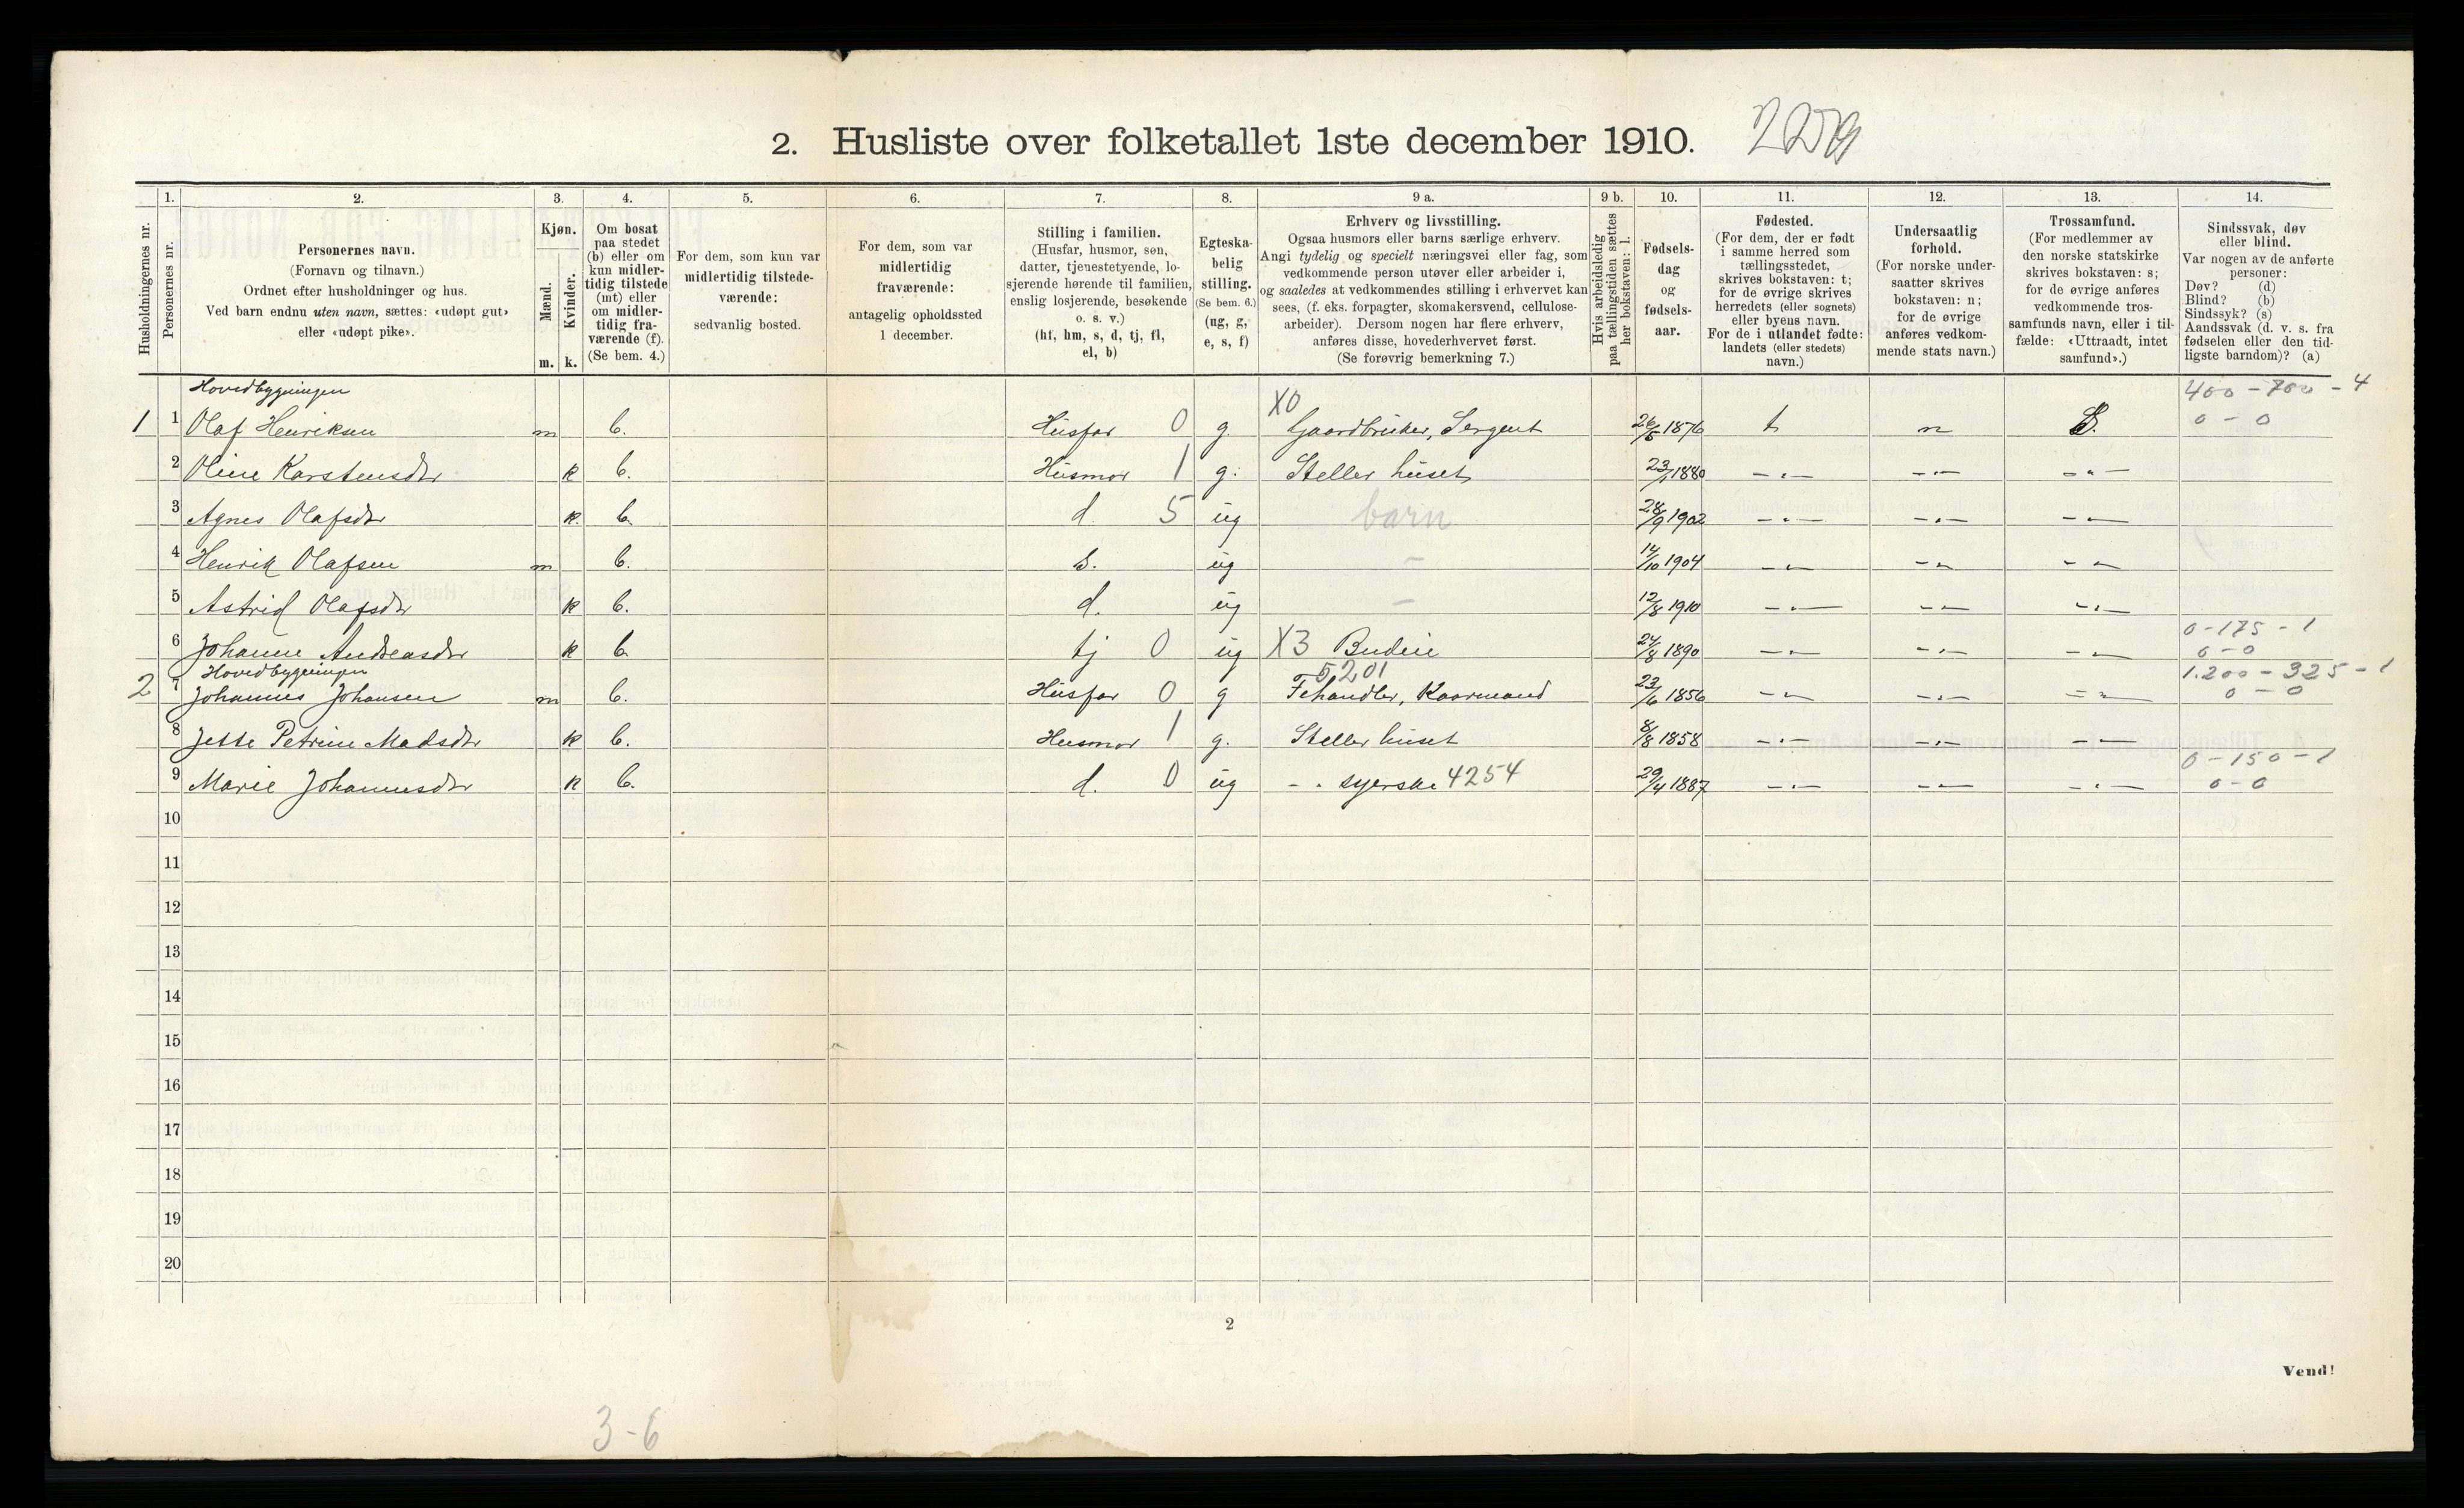 2. Husliste over folketallet 1ste december 1910.
1. 2. 3. 4. 5. 6. 7. 8. 9 a. 9 b. 10. 11. 12. 13. 14.
Husholdningernes nr.
Personernes nr.
Personernes navn.
(Fornavn og tilnavn.)
Ordnet efter husholdninger og hus.
Ved barn endnu uten navn, sættes: «udøpt gut»
eller «udøpt pike».
Kjøn.
Mænd.
Kvinder.
m. k.
Om bosat
paa stedet
(b) eller om
kun midler-
tidig tilstede
(mt) eller
om midler-
tidig fra-
værende (f).
(Se bem. 4.)
For dem, som kun var
midlertidig tilstede-
værende:
sedvanlig bosted.
For dem, som var
midlertidig
fraværende:
antagelig opholdssted
1 december.
Stilling i familien.
(Husfar, husmor, søn,
datter, tjenestetyende, lo-
sjerende hørende til familien,
enslig losjerende, besøkende
o. s. v.)
(hf, hm, s, d, tj, fl,
el, b)
Egteska-
belig
stilling.
(Se bem. 6.)
(ug, g,
e, s, f)
Erhverv og livsstilling.
Ogsaa husmors eller barns særlige erhverv.
Angi tydelig og specielt næringsvei eller fag, som
vedkommende person utøver eller arbeider i,
og saaledes at vedkommendes stilling i erhvervet kan
sees, (f. eks. forpagter, skomakersvend, cellulose-
arbeider). Dersom nogen har flere erhverv,
anføres disse, hovederhvervet først.
(Se forøvrig bemerkning 7.)
Hvis arbeidsledig
paa tællingstiden sættes
her bokstaven: l.
Fødsels-
dag
og
fødsels-
aar.
Fødested.
(For dem, der er født
i samme herred som
tællingsstedet,
skrives bokstaven: t;
for de øvrige skrives
herredets (eller sognets)
eller byens navn.
For de i utlandet fødte:
landets (eller stedets)
navn.)
Undersaatlig
forhold.
(For norske under-
saatter skrives
bokstaven: n;
for de øvrige
anføres vedkom-
mende stats navn.)
Trossamfund.
(For medlemmer av
den norske statskirke
skrives bokstaven: s;
for de øvrige anføres
vedkommende tros-
samfunds navn, eller i til-
fælde: «Uttraadt, intet
samfund».)
Sindssvak, døv
eller blind.
Var nogen av de anførte
personer:
Døv? (d)
Blind? (b)
Sindssyk? (s)
Aandssvak (d. v. s. fra
fødselen eller den tid-
ligste barndom)? (a)
Hovedbygningen 400 - 700 - 4
1 1 Olaf Henriksen m b. Husfar 0 g. X0 Gaardbruker, Sergent 26/5 1876 t n S. 0 - 0
2 Oline Karstensdr k b. Husmor 1 g. Steller huset 23/1 1880 - " - - " - - " -
3 Agnes Olafsdr k. b. d. 5 ug barn 28/9 1902 - " - - " - - " -
4 Henrik Olafsen m b. s. ug - 14/10 1904 - " - - " - - " -
5 Astrid Olafsdr k b. d. ug - 12/8 1910 - " - - " - - " -
0 - 175 - 1
6 Johanne Andreasdr k b. tj 0 ug X3 Budeie 24/8 1890 - " - - " - - " - 0 - 0
Hovedbygningen 5201 1.200 - 325 - 1
2 7 Johannes Johansen m b. Husfar 0 g Fehandler, Kaarmand 23/6 1856 - " - - " - - " - 0 - 0
8 Jette Petrine Madsdr k b. Husmor 1 g. Steller huset 8/8 1858 - " - - " - - " -
0 - 150 - 1
9 Marie Johannesdr k b. d. 0 ug - " syerske 4254 29/4 1887 - " - - " - - " - 0 - 0
10
11
12
13
14
15
16
17
18
19
20
2
Vend!
3-6